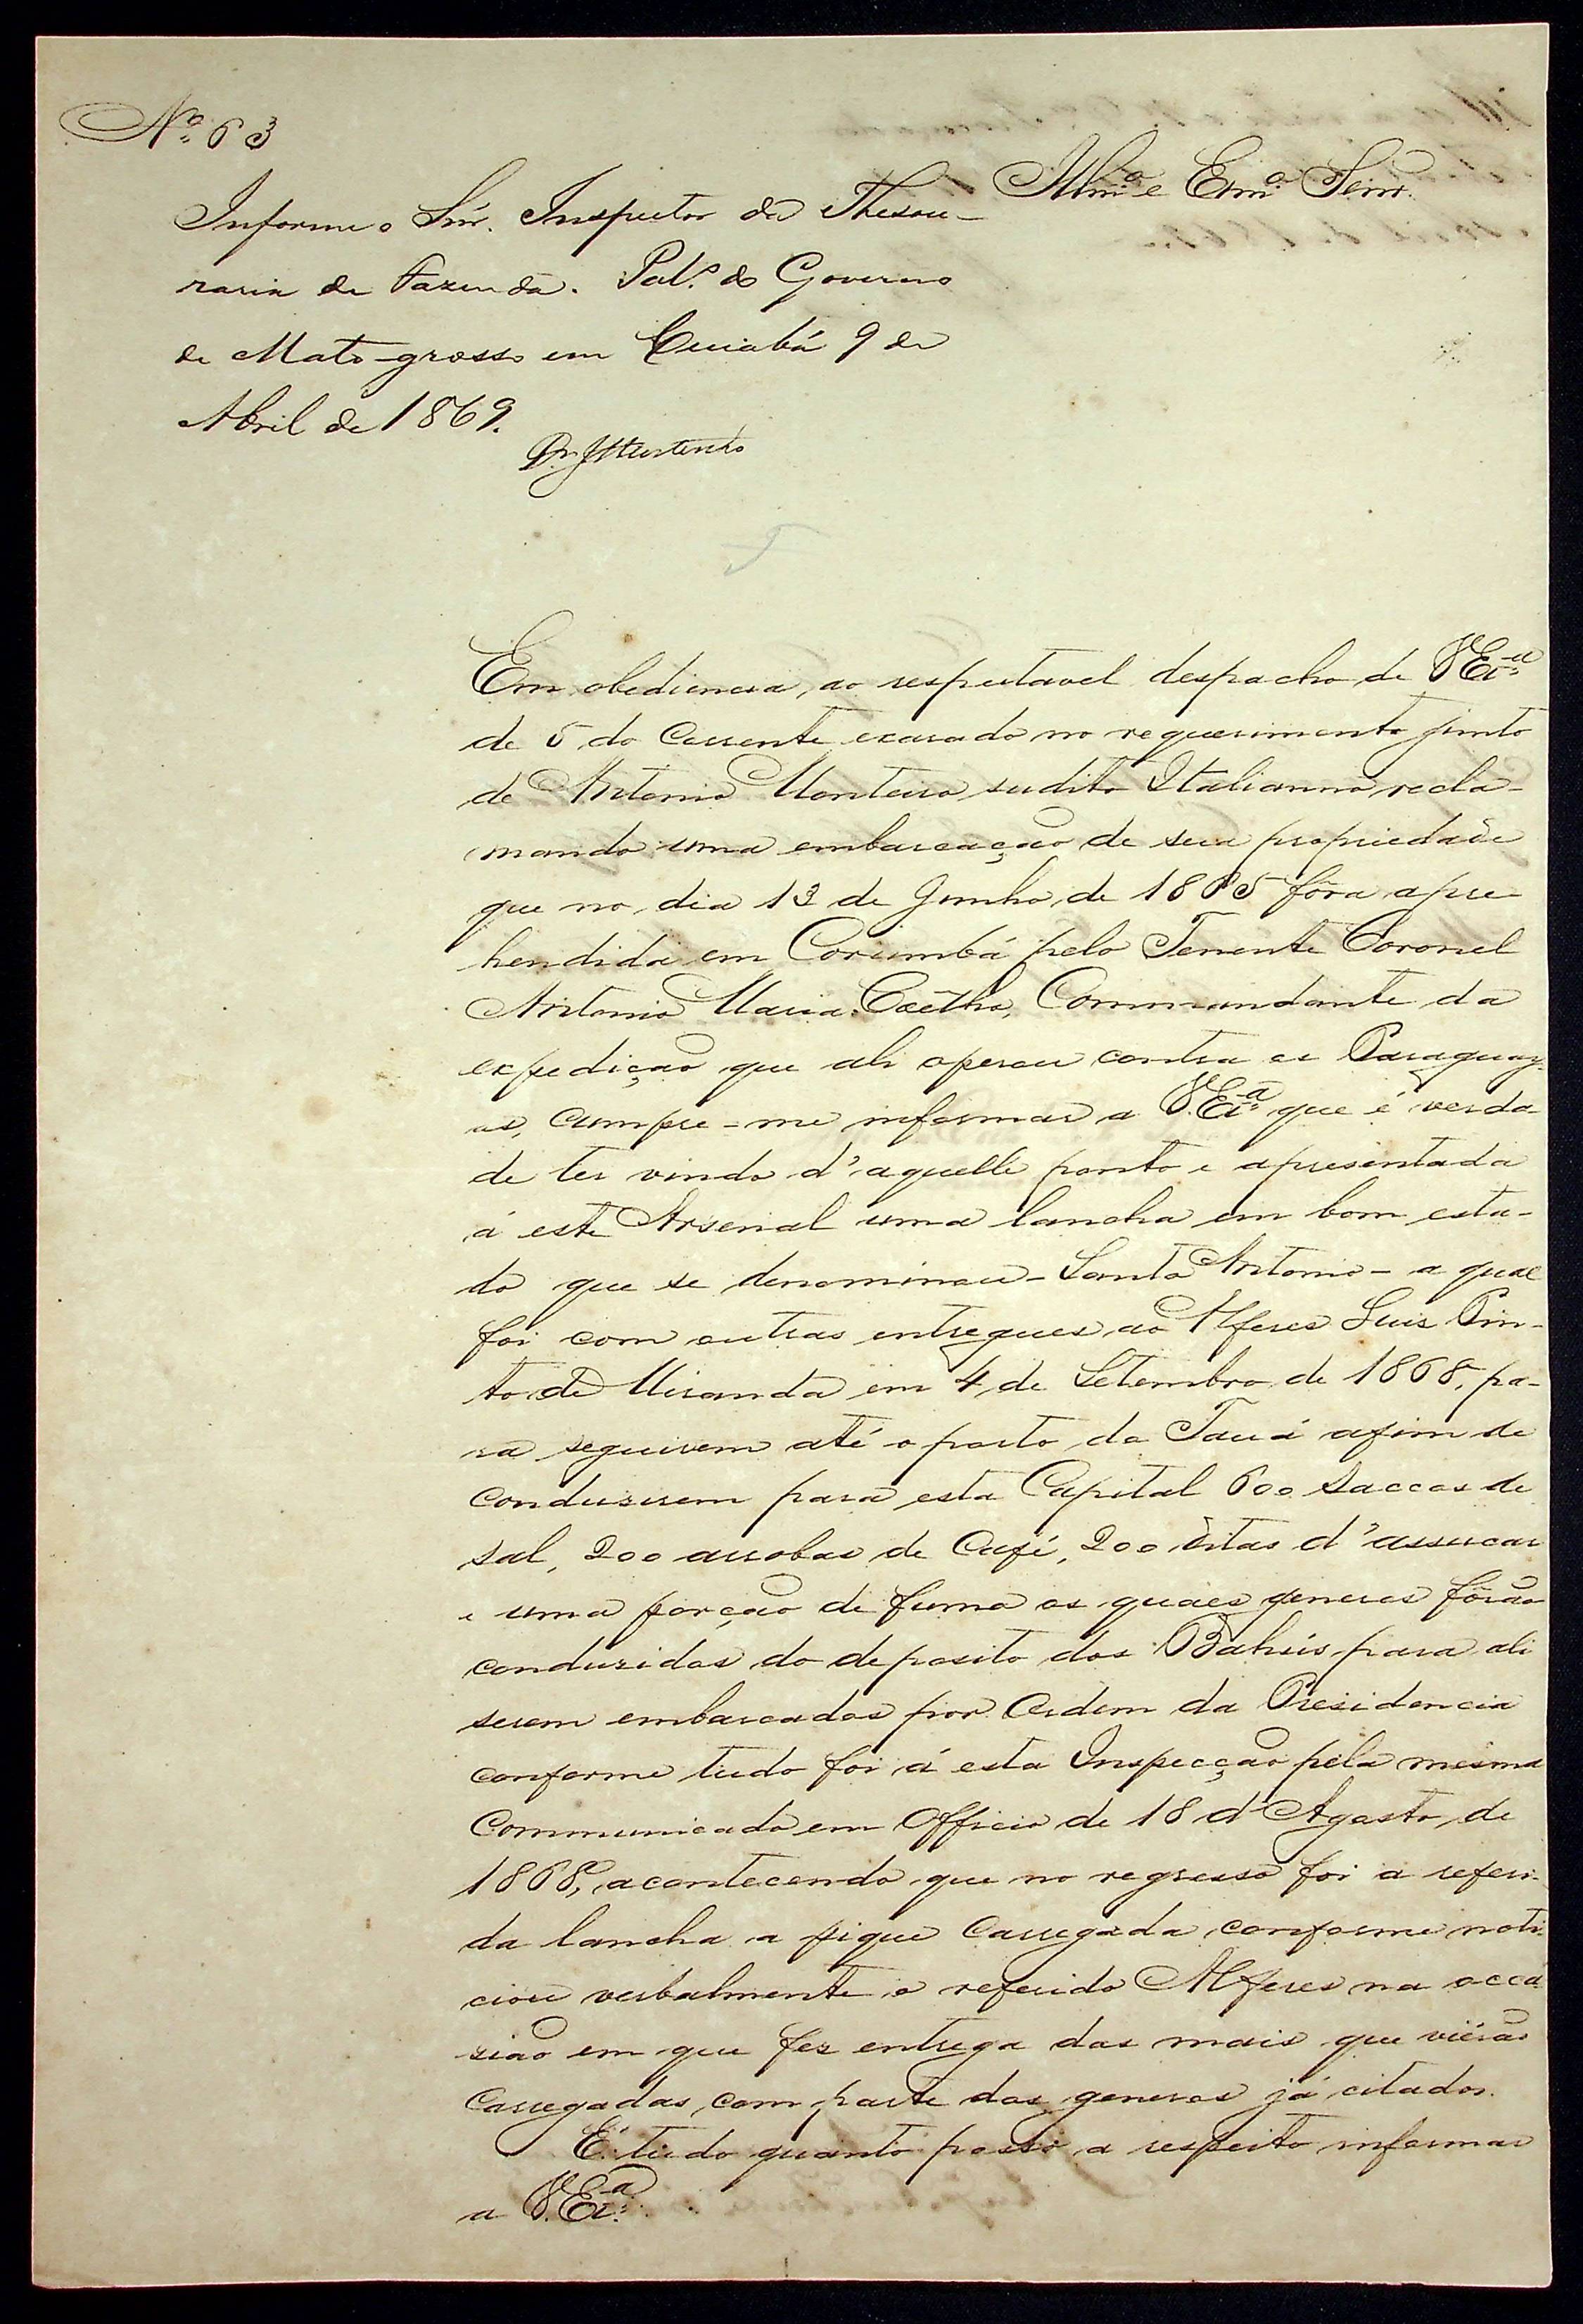 Nº 63
Illmº e Exmº Senr.
Informe o Snr. Inspector da Thesou-
raria de Fazenda. Palº do Governo
de Mato-grosso em Cuiabá 9 de
Abril de 1869.
Em obediencia, ao respeitavel despacho de VExª
de 5 do Corrente exarado no requerimento junto
de Antonio Monteiro sudito Italianno recla-
mando uma embarcação de sua propriedade
que no dia 13 de Junho de 1865 fôra apre-
hendida em Corumbá pelo Tenente Coronel
Antonio Maria Coêlho, Commandante da
expedição que ali operou contra os Paraguay-
os, cumpre-me informar a V.Exª que é verda-
de ter vindo d'aquelle ponto e apresentada
á este Arsenal uma lancha em bom esta-
do que se denominou - Santo Antonio - a qual
foi com outras entregues ao Alferes Luis Pin-
to de Miranda em 4 de Setembro de 1868, pa-
ra seguirem até o porto do Tauá afim de
conduzirem para esta Capital 600 saccos de
sal, 200 arrobas de Café, 200 ditas d'assucar
e uma porção de fumo os quaes generos fôrão
conduzidos do deposito dos Bahús para ali
serem embarcados por Ordem da Presidencia
conforme tudo foi á esta Inspecção pela mesma
Communicado em Officio de 18 d'Agosto de
1868, acontecendo que no regresso foi a referi-
da lancha a pique Carregada conforme noti-
ciou verbalmente o referido Alferes na occa-
sião em que fez entrega das mais que viérão
Carregadas com parte dos generos já citados.
É tudo quanto posso a respeito informar
a V.Exª